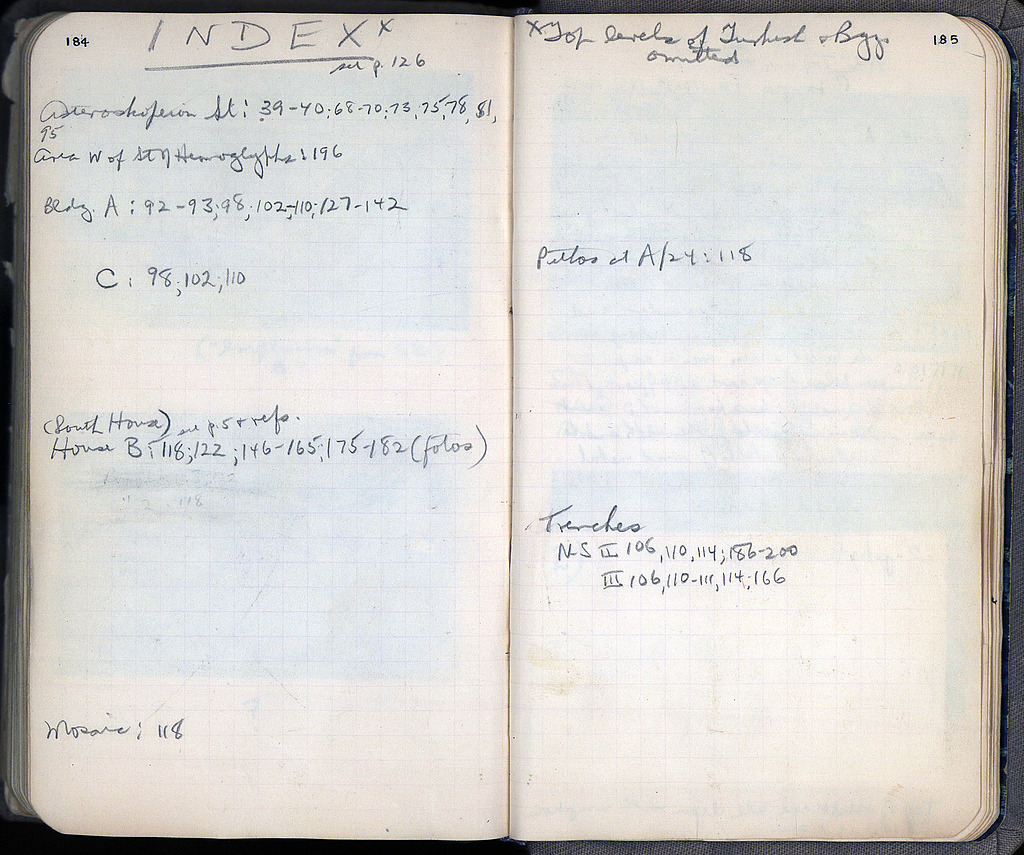 184
INDEX x
see p. 126
Asteroskopeion St: 39-40; 68-70; 73, 75, 78, 81,
95
Area W of St of Hermoglyphs: 196
Bldg. A: 92-93; 98; 102-110; 127-142
C: 98; 102; 110
(South House) see p. 5 + refs.
House B: 118; 122; 146-165; 175-182 (fotos)
" 2 118
Mosaic: 118
x Top levels of Turkish & Byz.
omitted
185
Pithos at A/24: 118
Trenches
N-S II 106, 110, 114; 186-200
III 106, 110-111, 114, 166